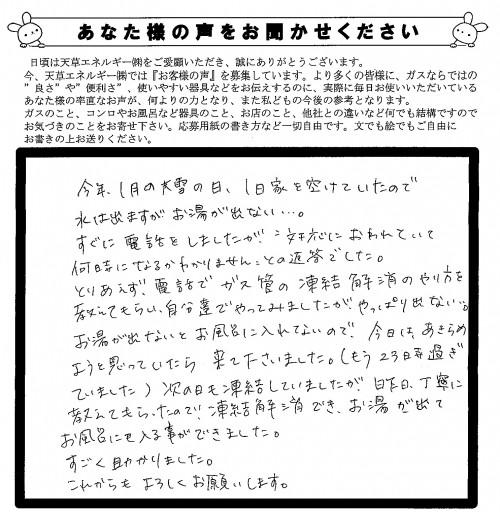 あなた様の声をお聞かせください
日頃は天草エネルギー㈱をご愛願いただき、誠にありがとうございます。
今、天草エネルギー㈱では『お客様の声』を募集しています。より多くの皆様に、ガスならではの
”良さ”や”便利さ”、使いやすい器具などをお伝えするのに、実際に毎日お使いいただいている
あなた様の率直なお声が、何よりの力となり、また私どもの今後の参考となります。
ガスのこと、コンロやお風呂など器具のこと、お店のこと、他社との違いなど何でも結構ですので
お気づきのことをお寄せ下さい。応募用紙の書き方など一切自由です。文でも絵でもご自由に
お書きの上お送りください。
今年、1月の大雪の日、1日家を空けていたので
水は出ますがお湯が出ない…。
すぐに電話をしましたが、対応におわれていて
何時になるかわかりませんとの返答でした。
とりあえず、電話でガス管の凍結解消のやり方を
教えてもらい、自分達でやってみましたがやっぱり出ない…。
お湯が出ないとお風呂に入れてないので、今日は、あきらめ
ようと思っていたら来て下さいました。(もう23時過ぎ
ていました)次の日も凍結していましたが、昨日、丁寧に
教えてもらったので、凍結解消でき、お湯が出て
お風呂にも入る事ができました。
すごく助かりました。
これからもよろしくお願いします。